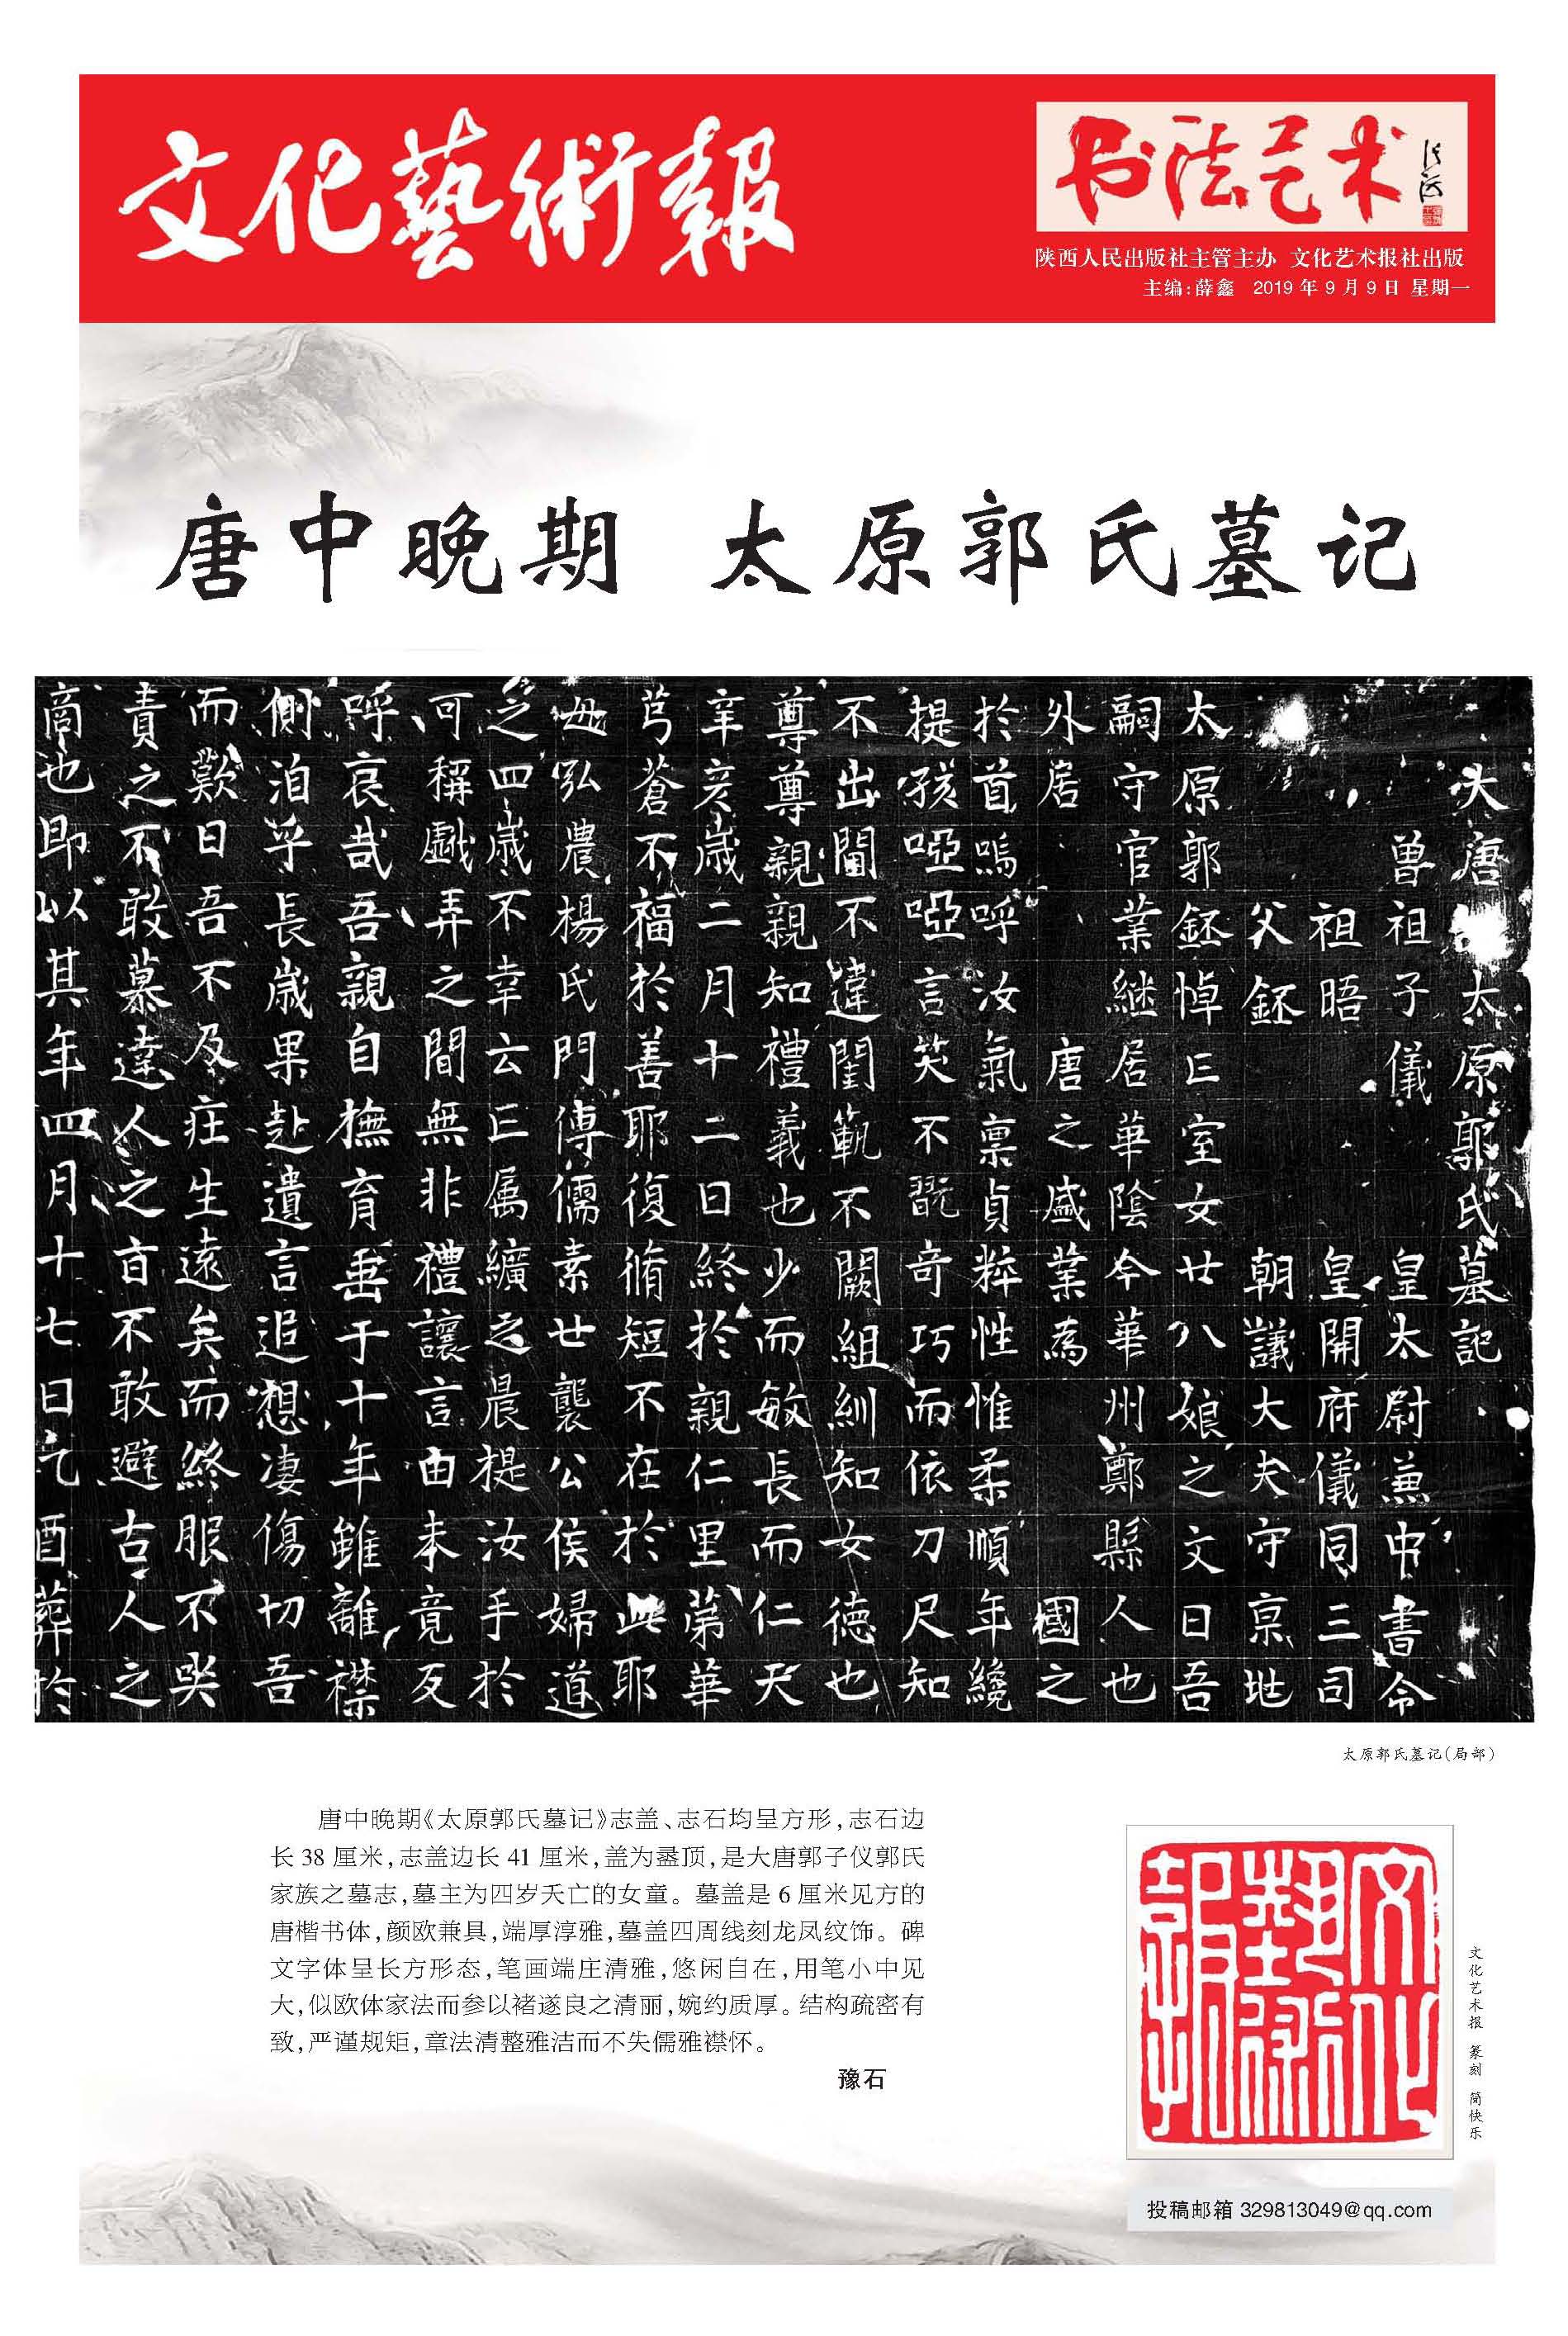 文化藝術報
书法艺术
陕西人民出版社主管主办 文化艺术报社出版
主编:薛鑫 2019年9月9日 星期一
唐中晚期 太原郭氏墓记
大唐 太原郭氏墓記
曾祖子儀 皇太尉兼中書令
祖晤 皇開府儀同三司
父鉟 朝議大夫守京兆
太原郭鉟悼亡室女廿八娘之文曰吾
嗣守官業継居華陰今華州鄭縣人也
外居 唐之盛業為 國之
於首嗚呼汝氣稟貞粹性惟柔順年纔
提孩啞啞言笑不翫奇巧而依刀尺知
不出閫不違閨範不闕組紃知女德也
尊尊親親知禮義也少而敏長而仁天
辛亥歲二月十二日終於親仁里第華
芎蒼不福於善耶復脩短不在於此耶
母弘農楊氏門傳儒素世襲公侯婦道
之四歲不幸云亡属纊之晨提汝手於
可稱戲弄之間無非禮讓言由未竟反
呼哀哉吾親自撫育垂于十年雖離襟
側洎乎長歲果赴遺言追想凄傷切吾
而歎曰吾不及庄生遠矣而終服不哭
責之不敢慕達人之旨不敢避古人之
商也即以其年四月十七日乞酉葬於
太原郭氏墓记(局部)
唐中晚期《太原郭氏墓记》志盖、志石均呈方形,志石边
长38厘米,志盖边长41厘米,盖为盝顶,是大唐郭子仪郭氏
家族之墓志,墓主为四岁夭亡的女童。墓盖是6厘米见方的
唐楷书体,颜欧兼具,端厚淳雅,墓盖四周线刻龙凤纹饰。碑
文字体呈长方形态,笔画端庄清雅,悠闲自在,用笔小中见
大,似欧体家法而参以褚遂良之清丽,婉约质厚。结构疏密有
致,严谨规矩,章法清整雅洁而不失儒雅襟怀。
豫石
文化藝術報
文化艺术报 篆刻 简快乐
投稿邮箱 329813049@qq.com